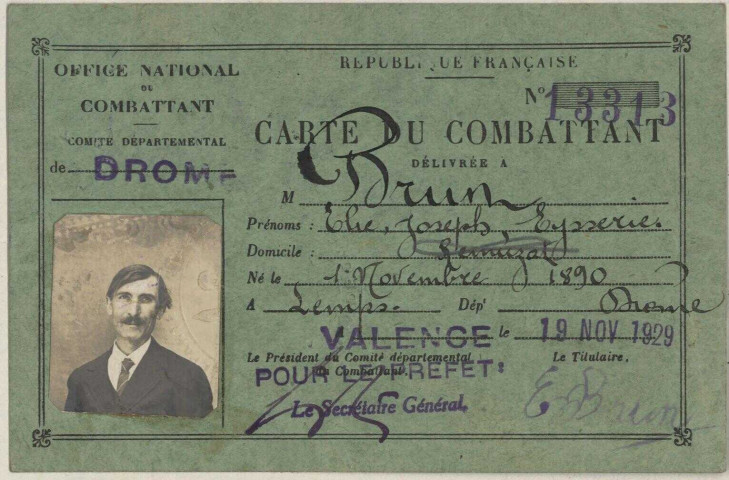 OFFICE NATIONAL
DU
COMBATTANT
COMITÉ DÉPARTEMENTAL
de DROME
RÉPUBLIQUE FRANÇAISE
N° 13313
CARTE DU COMBATTANT
DÉLIVRÉE A
M Brun
Prénoms : Elie, Joseph, Eysseric.
Domicile : Lemuzat
Né le 1er Novembre 1890
A Lemps. Dépt Drome
VALENCE le 19 NOV 1929
Le Président du Comité départemental
du Combattant.
Le Titulaire,
POUR LE PREFET:
Le Secrétaire Général,
E Brun